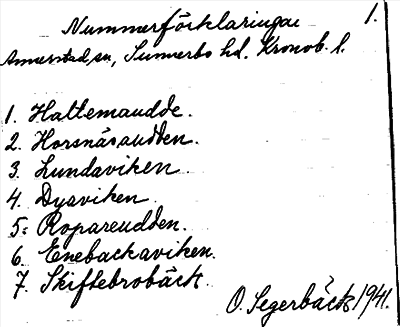 Nummerförklaringar 1.
Annerstad sn, Sunnerbo hd. Kronob. l.
1. Hattemaudde.
2. Horsnäsaudden.
3. Lundaviken.
4. Dyaviken.
5. Ropareudden.
6. Enebackaviken.
7. Skiftebrobäck.
O. Segerbäck 1941.